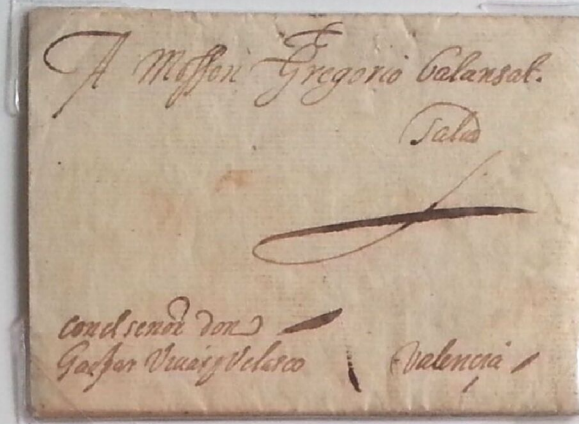 A Mossen Gregorio Calansat.
con el señor don
Gaspar Vivas y Velasco
Valencia